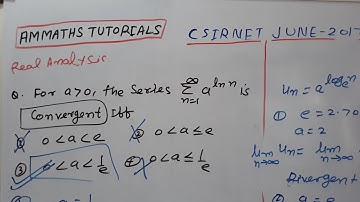 AMMATHS TUTORIALS
CSIRNET JUNE-201
Real Analysis
Q. For a>0, the Series ∑_{n=1}^{∞} a^{ln n} is
Convergent Iff
① 0<a<e ② 0<a≤e
③ 0<a<1/e ④ 0<a≤1/e
Un = a^{log_e n}
① e = 2.70
a = 2
lim_{n→∞} Un = lim_{n→∞}
Divergent
② a =